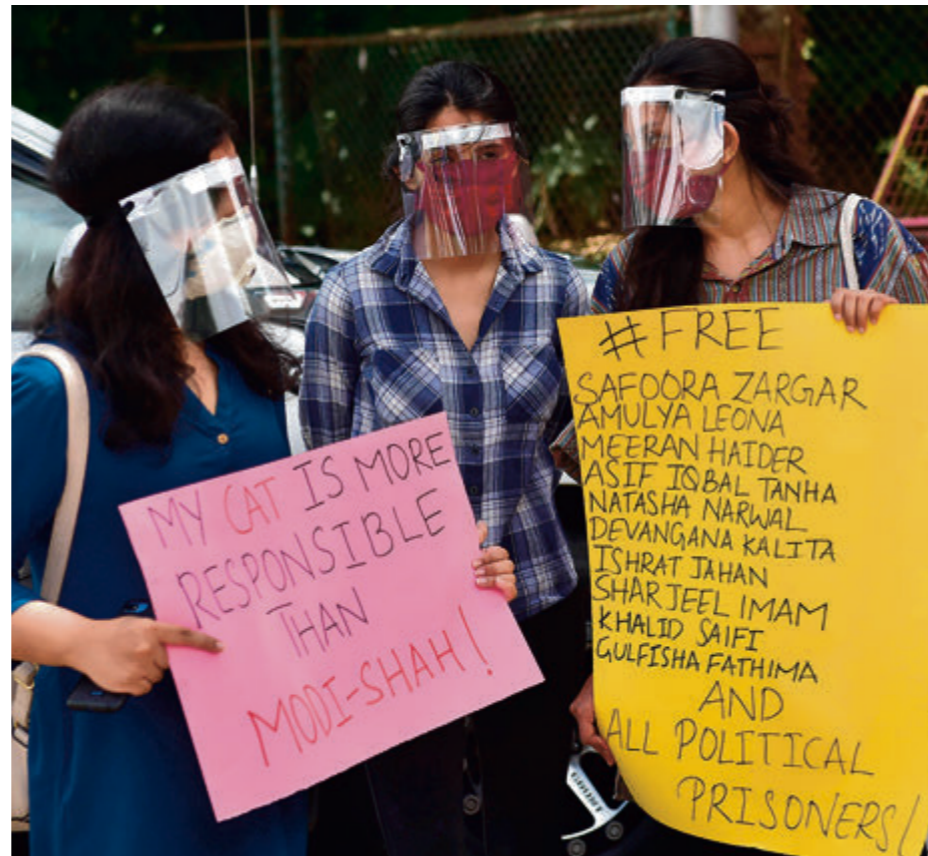 MY CAT IS MORE
RESPONSIBLE
THAN
MODI-SHAH!
#FREE
SAFOORA ZARGAR
AMULYA LEONA
MEERAN HAIDER
ASIF IQBAL TANHA
NATASHA NARWAL
DEVANGANA KALITA
ISHRAT JAHAN
SHARJEEL IMAM
KHALID SAIFI
GULFISHA FATHIMA
AND
ALL POLITICAL
PRISONERS!